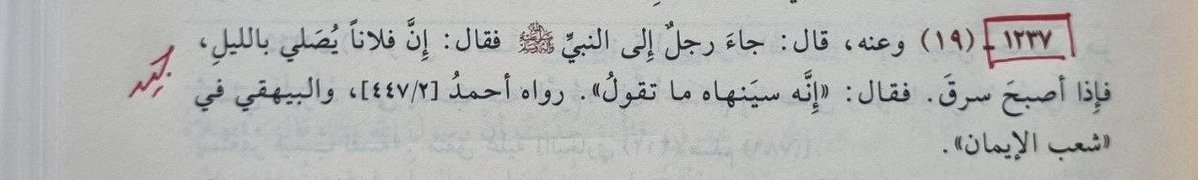 ١٢٣٧ ـ (١٩) وعنه، قال: جاءَ رجلٌ إِلى النبيِّ ﷺ فقال: إِنَّ فلاناً يُصَلي بالليلِ،
فإِذا أصبحَ سرقَ. فقال: «إِنَّه سيَنهاه ما تقولُ». رواه أحمدُ [٤٤٧/٢]، والبيهقي في
«شعب الإيمان».